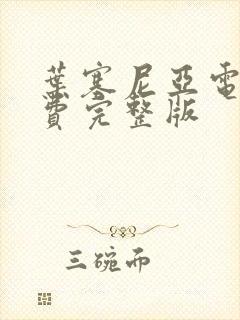 葉塞尼亞電
費完整版
三碗而